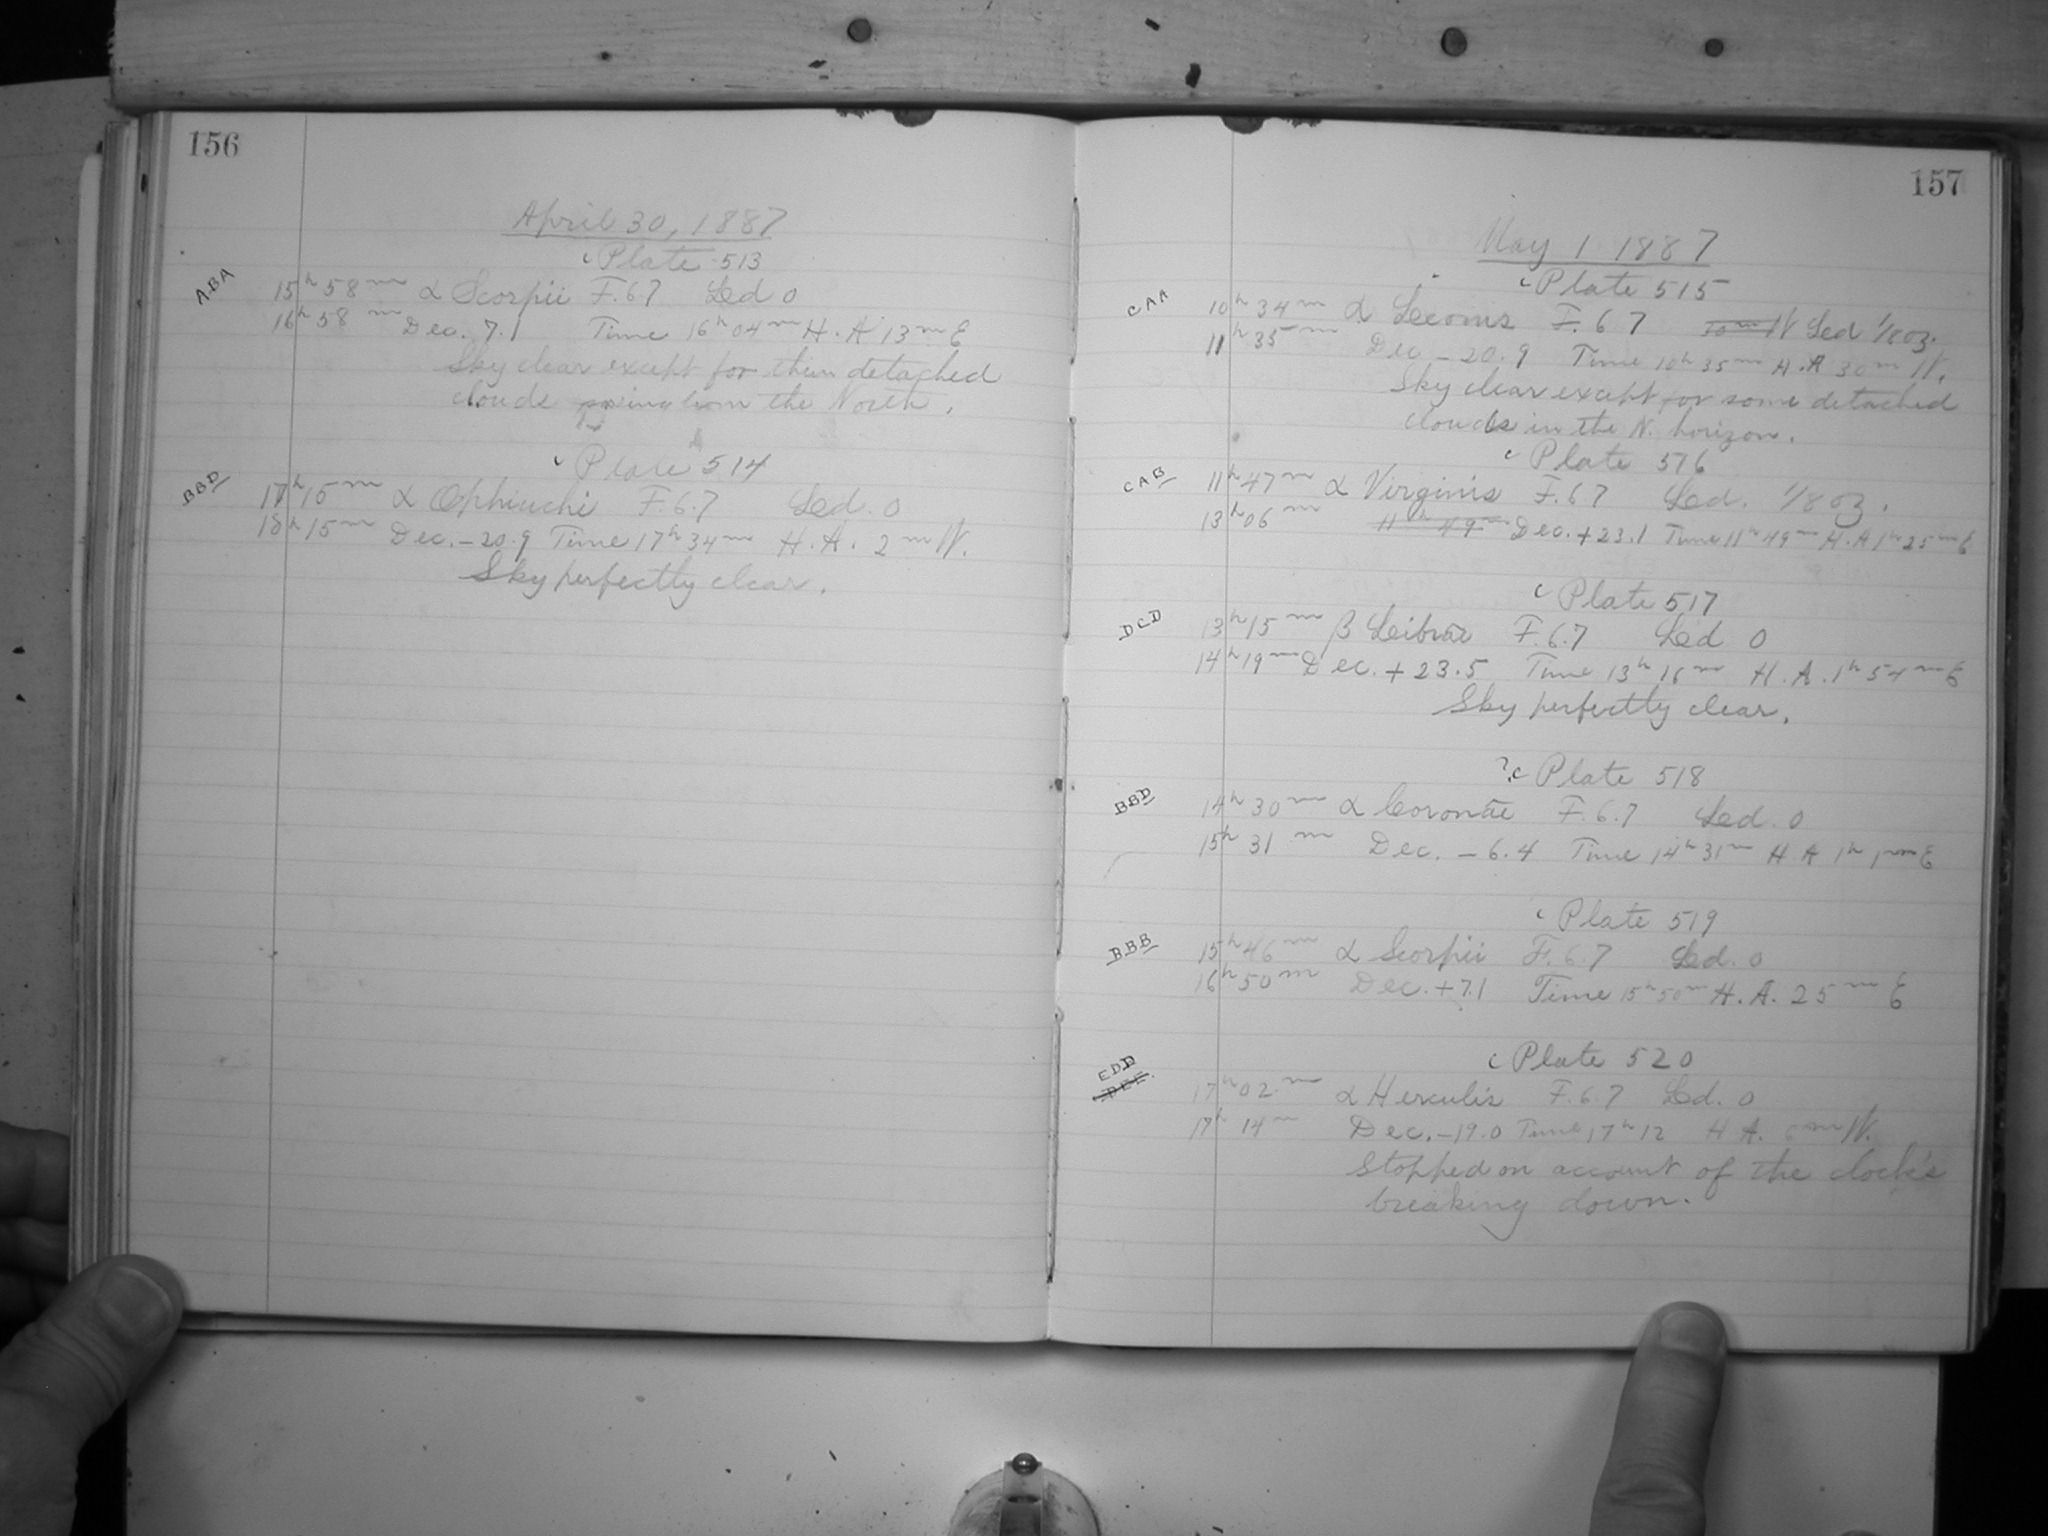 156
April 30, 1887
c Plate 513
ABA 15h 58m α Scorpii F. 6.7 Led 0
16h 58m Dec. 7.1 Time 16h 04m H. A 13m E
Sky clear except for thin detached
clouds from the North.
c Plate 514
BBD 17h 15m α Ophiuchi F. 6.7 Led. 0
18h 15m Dec. -20.9 Time 17h 34m H. A. 2m W.
Sky perfectly clear.
157
May 1 1887
c Plate 515
CAA 10h 34m α Leonis F. 6 7 10m W Led 1/8 oz.
11h 35m Dec -20.9 Time 10h 35m H. A 30m W.
Sky clear except for some detached
clouds in the N. horizon.
c Plate 516
CAB 11h 47m α Virginis F. 6.7 Led. 1/8 oz.
13h 06m 11h 49m Dec. +23.1 Time 11h 49m H. A 1h 25m E
c Plate 517
DCD 13h 15m β Leibrae F. 6.7 Led 0
14h 19m Dec. +23.5 Time 13h 16m H. A. 1h 54m E
Sky perfectly clear.
?c Plate 518
BBD 14h 30m α Coronae F. 6.7 Led. 0
15h 31m Dec. -6.4 Time 14h 31m H A 1h 1m E
c Plate 519
BBB 15h 46m α Scorpii F. 6.7 Led. 0
16h 50m Dec. +7.1 Time 15h 50m H. A. 25m E
c Plate 520
EDD
17h 02m α Herculis F. 6.7 Led. 0
17h 14m Dec. -19.0 Time 17h 12 H A. 6m W.
Stopped on account of the clock's
breaking down.